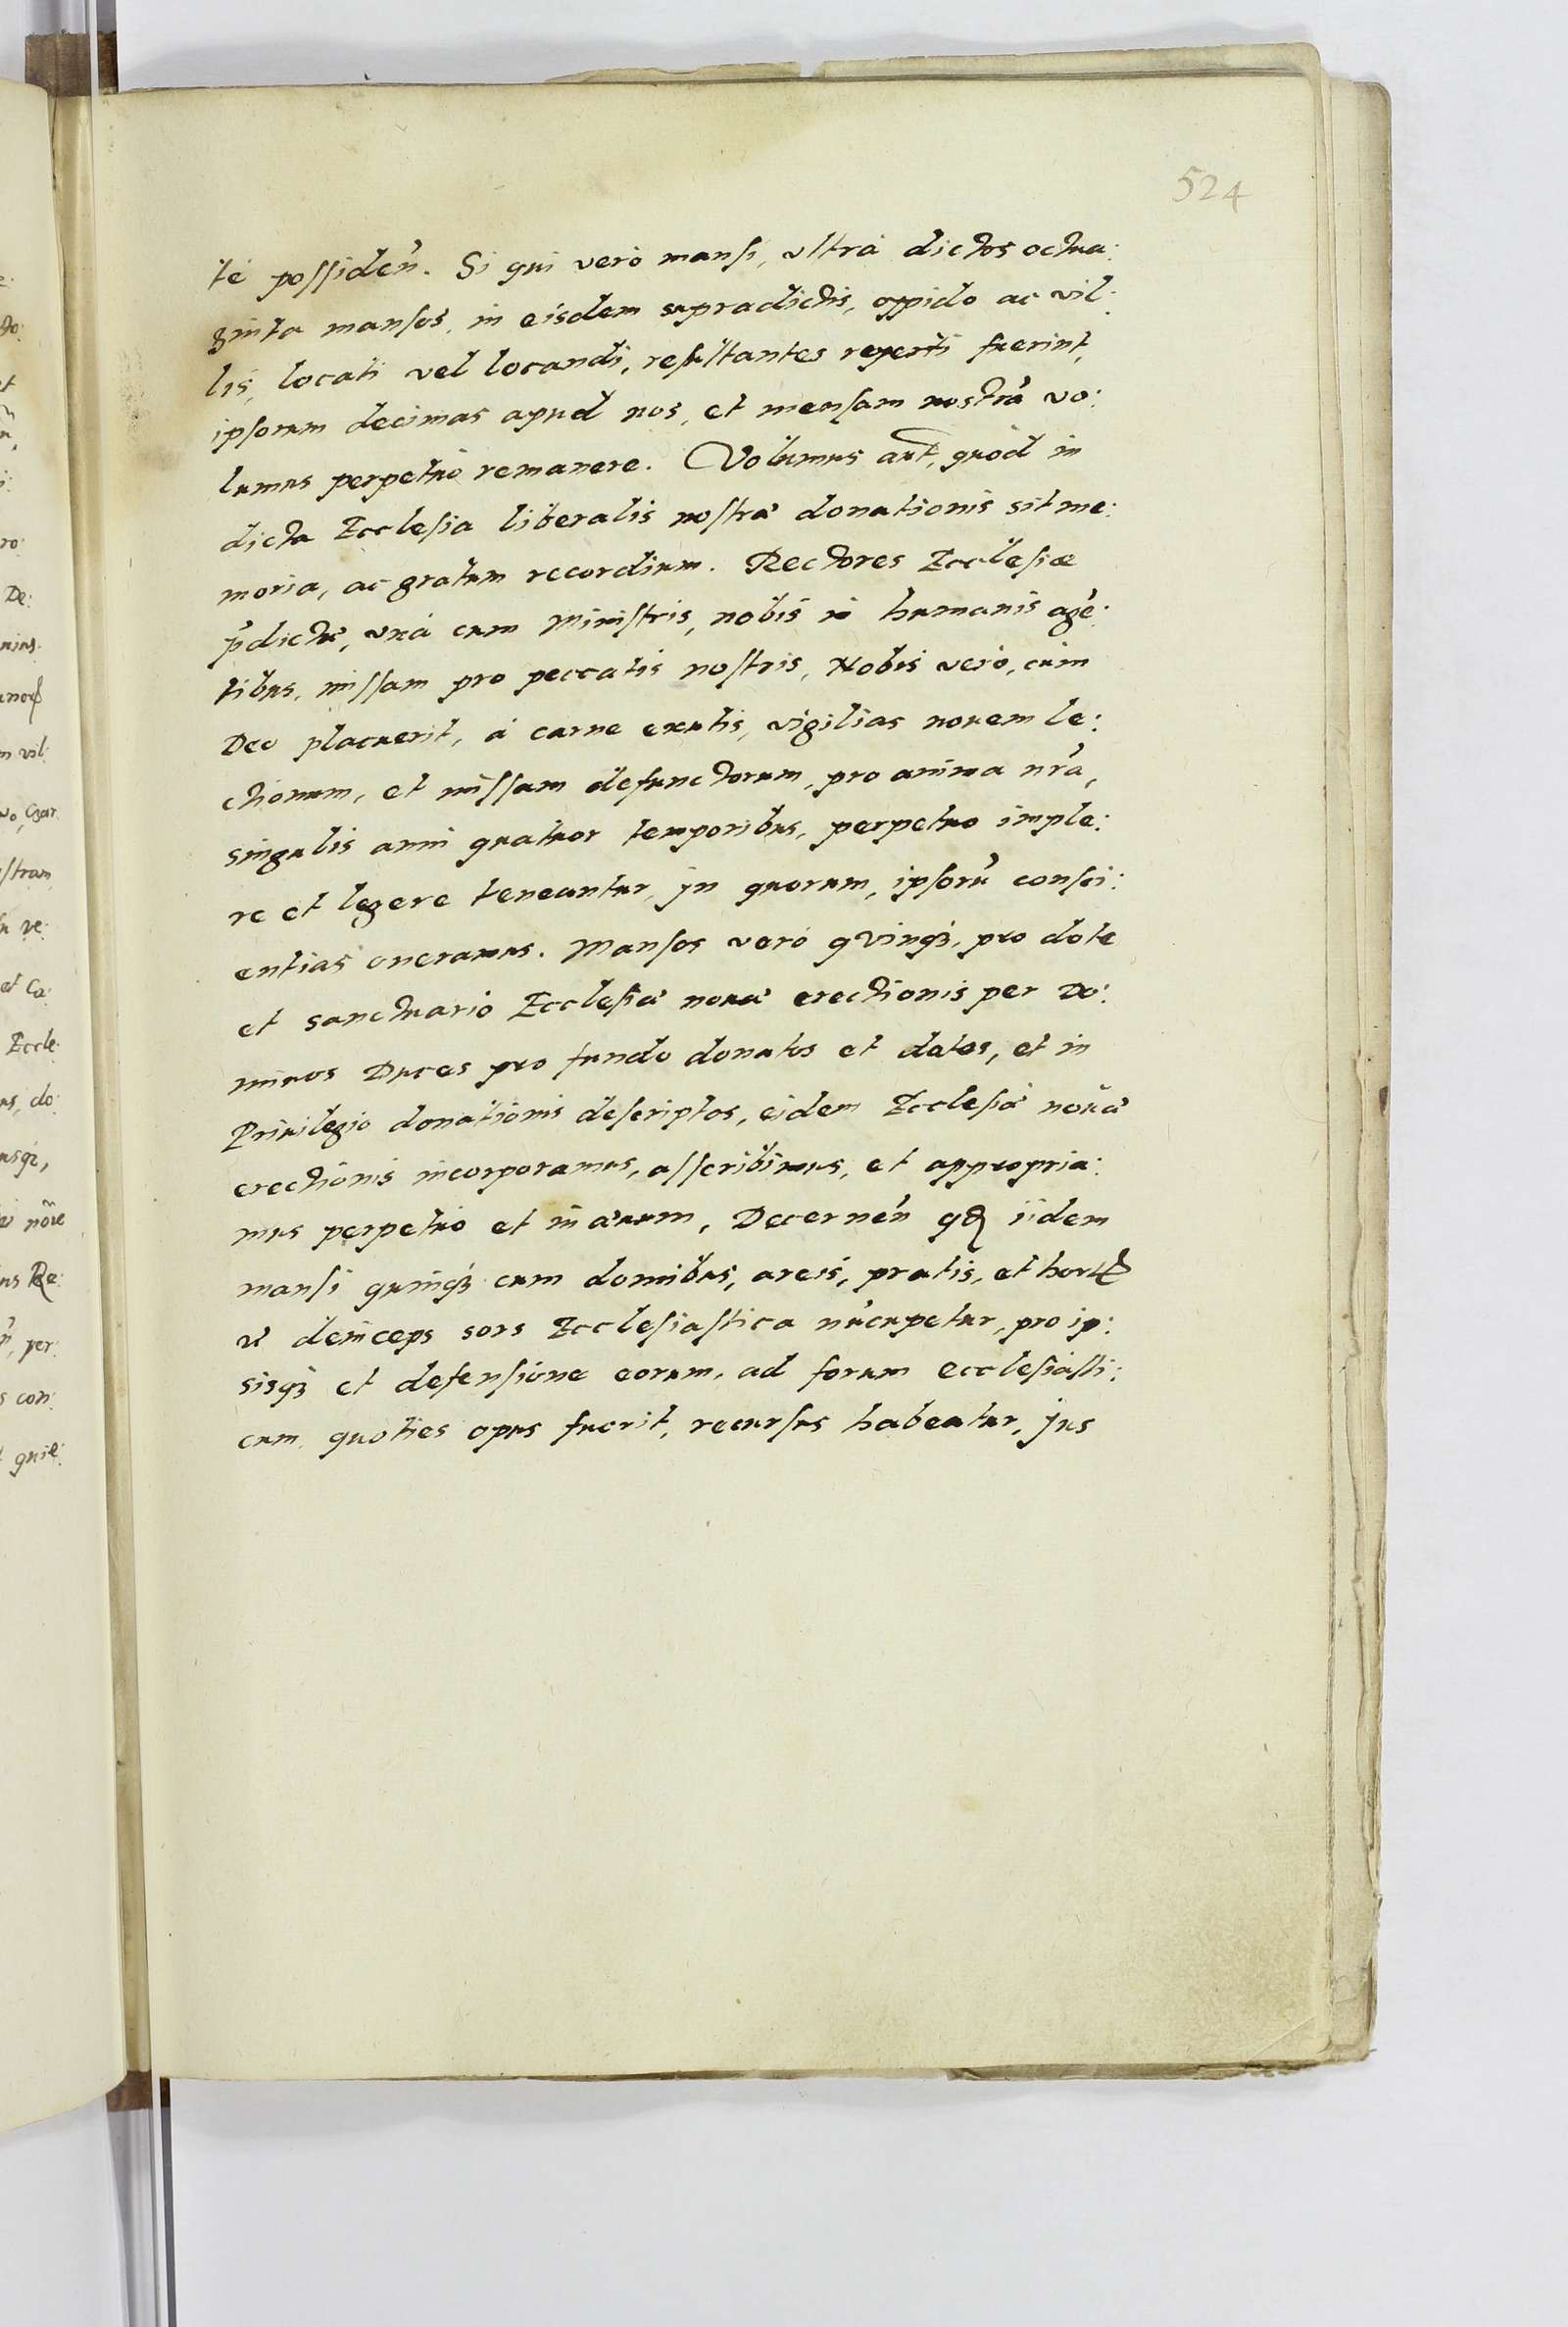 524
té possideń. Si qui verò mansi, vltrà dictos octua:
ginta mansos, in eisdem supradictis, oppido ac vil:
lis, locati vel locandi, resultantes reperti fuerint,
ipsorum decimas apud nos, et mensam nostrā vo:
lumus perpetuò remanere. Volumus aut, quòd in
dicta Ecclesia liberalis nostra donationis sit me:
moria, ac gratum recordium. Rectores Ecclesiæ
p̄dicta, vnà cum Ministris, nobis ī humanis agē:
tibus, missam pro peccatis nostris, Nobis verò, cùm
Deo placuerit, à carne exutis, vigilias nouem le:
ctionum, et missam defunctorum, pro anima nr̄a,
singulis anni quatuor temporibus, perpetuo imple:
re et legere teneantur, jn quorum, ipsorū consci:
entias oneramus. Mansos verò qvinq3, pro dote
et sanctuario Ecclesia noua erectionis per Do:
minos Duces pro fundo donatos et datos, et in
Priuilegio donationis descriptos, eidem Ecclesia noua
erectionis incorporamus, asscribimus, et appropria:
mus perpetuò et in æuum, Decerneń qđ ijdem
mansi quinq3 cum domibus, areis, pratis, et hortis
vt deinceps sors Ecclesiastica nūcupetur, pro ip:
sisq3 et defensione eorum, ad forum ecclesiasti:
cum, quoties opus fuerit, recursus habeatur, jus
to:
et
i:
ro:
De:
m vil:
stram
ve:
et Ca:
Eccle:
us, do:
usq3,
nōīe
us Re:
per:
s con:
quie: